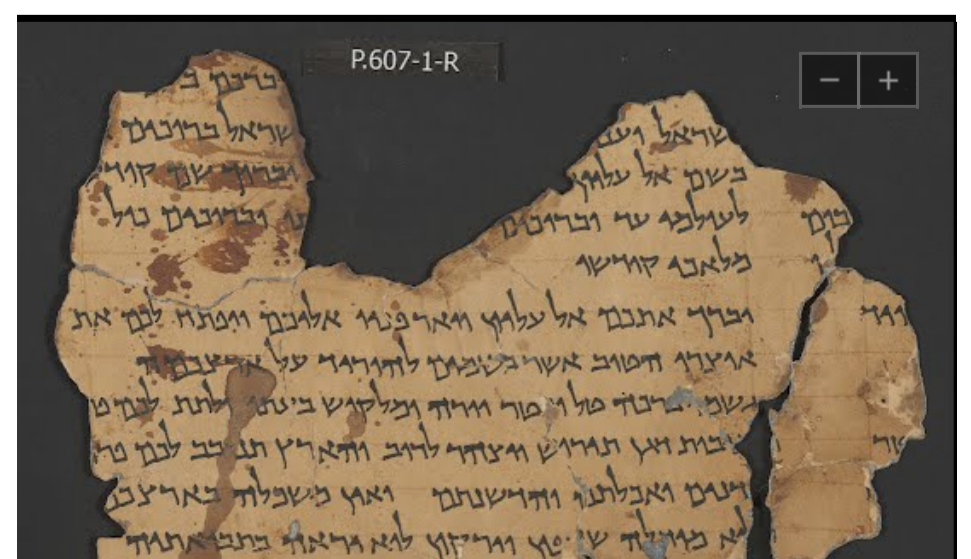 P.607-1-R
וברכם ב
שראל וענ שראל ברוכים
בשם אל עליון וברוך שם קוד
לעולמי עד וברוכים תו וברוכים כול
מלאכי קודשו
יברך אתכם אל עליון ויאר פניו אליכם ויפתח לכם את
אוצרו הטוב אשר בשמים להוריד על ארצכם
גשמי ברכה טל ומטר יורה ומלקוש בעתו ולתת לכם
דגן תירוש ויצהר לרוב והארץ תנובב לכם פרי
דנים ואכלתם והדשנתם ואין משכלה בארצכם
לא מוחלה שדפון וירקון לוא יראה בתבואתיה